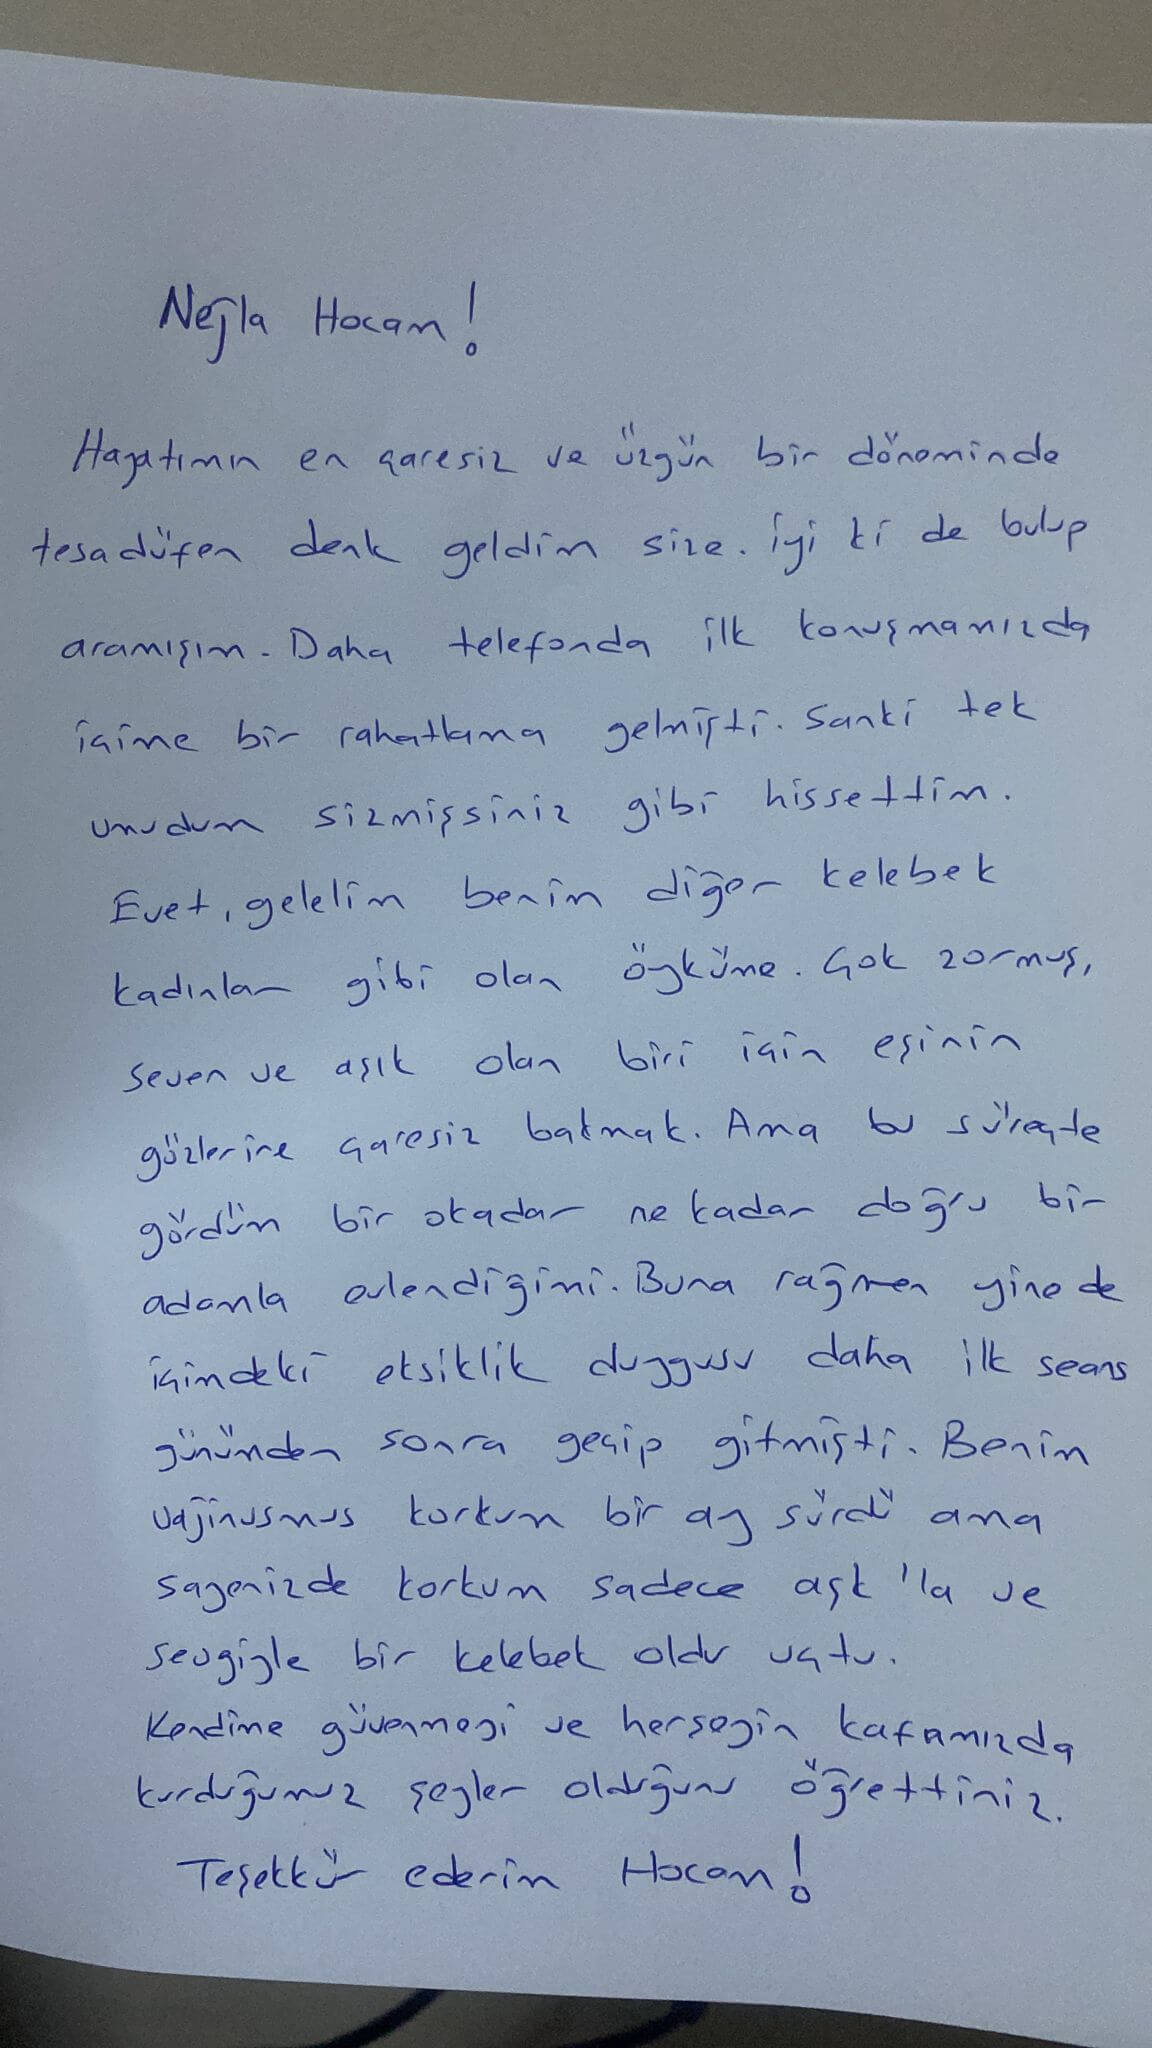 Nejla Hocam!
Hayatımın en çaresiz ve üzgün bir döneminde
tesadüfen denk geldim size. İyi ki de bulup
aramışım. Daha telefonda ilk konuşmamızda
içime bir rahatlama gelmişti. Sanki tek
umudum sizmişsiniz gibi hissettim.
Evet, gelelim benim diğer kelebek
kadınlar gibi olan öyküme. Çok zormuş,
seven ve aşık olan biri için eşinin
gözlerine çaresiz bakmak. Ama bu süreçte
gördüm bir okadar ne kadar doğru bir
adamla evlendiğimi. Buna rağmen yine de
içimdeki eksiklik duygusu daha ilk seans
gününden sonra geçip gitmişti. Benim
vajinusmus korkum bir ay sürdü ama
sayenizde korkum sadece aşk'la ve
sevgiyle bir kelebek oldu uçtu.
Kendime güvenmeyi ve herşeyin kafamızda
kurduğumuz şeyler olduğunu öğrettiniz.
Teşekkür ederim Hocam!